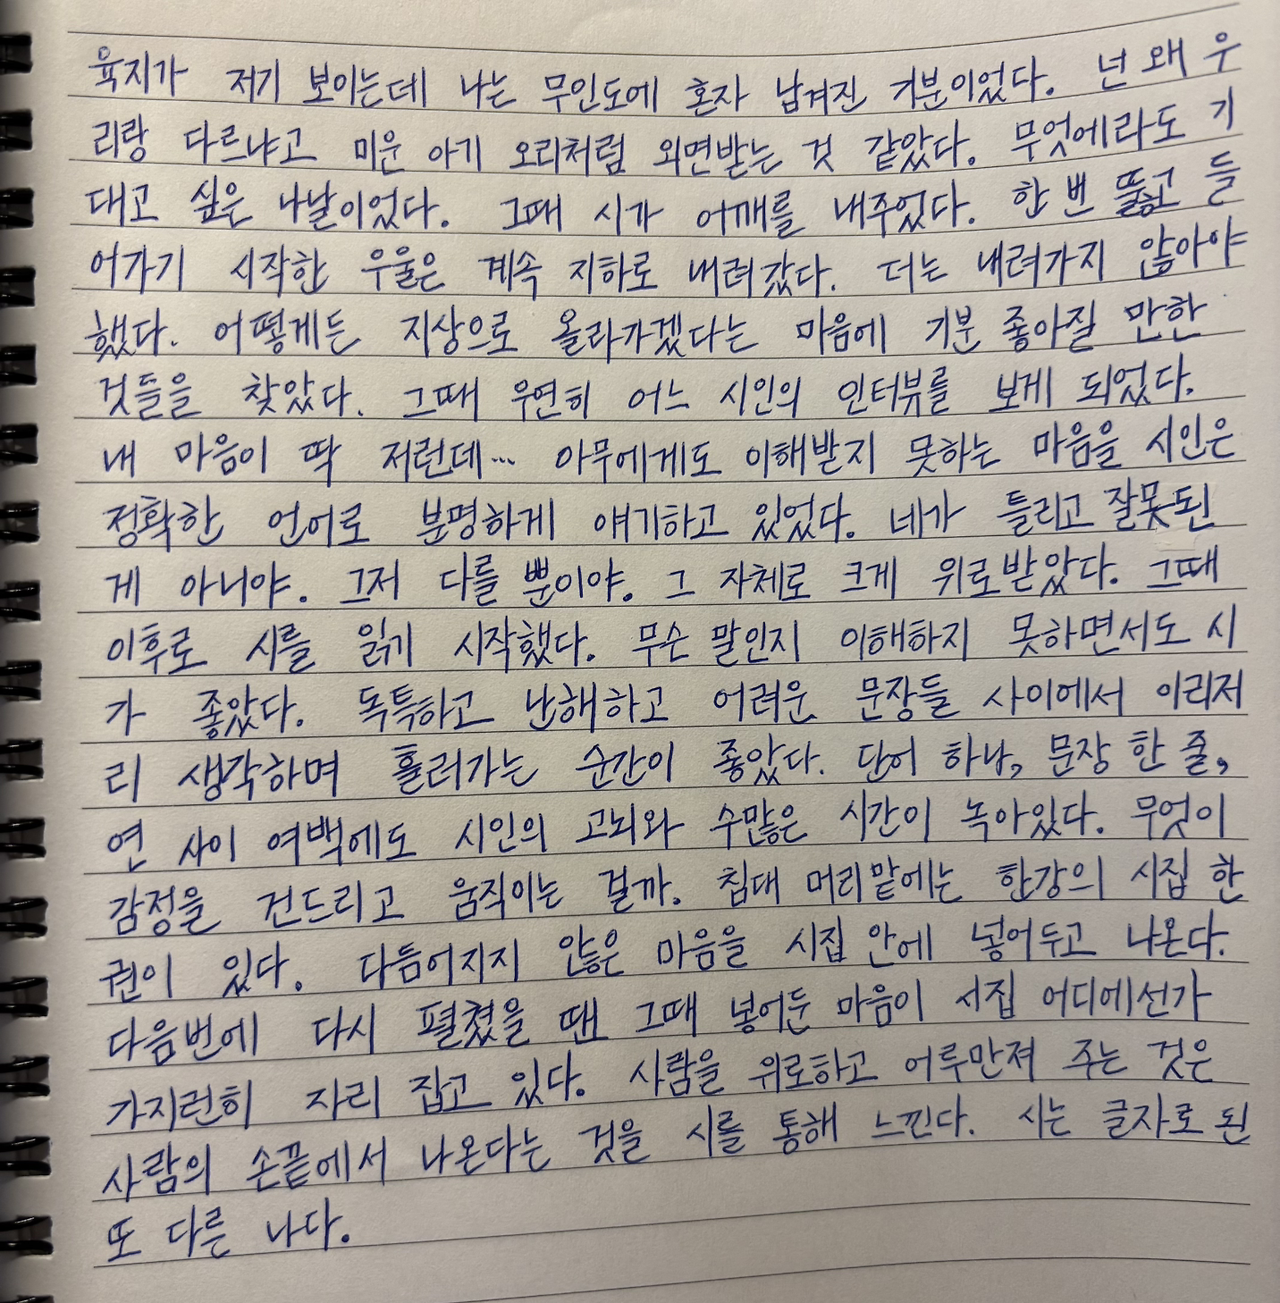 육지가 저기 보이는데 나는 무인도에 혼자 남겨진 기분이었다. 넌 왜 우
리랑 다르냐고 미운 아기 오리처럼 외면받는 것 같았다. 무엇에라도 기
대고 싶은 나날이었다. 그때 시가 어깨를 내주었다. 한 번 뚫고 들
어가기 시작한 우울은 계속 지하로 내려갔다. 더는 내려가지 않아야
했다. 어떻게든 지상으로 올라가겠다는 마음에 기분 좋아질 만한
것들을 찾았다. 그때 우연히 어느 시인의 인터뷰를 보게 되었다.
내 마음이 딱 저런데... 아무에게도 이해받지 못하는 마음을 시인은
정확한 언어로 분명하게 얘기하고 있었다. 네가 틀리고 잘못된
게 아니야. 그저 다를 뿐이야. 그 자체로 크게 위로받았다. 그때
이후로 시를 읽기 시작했다. 무슨 말인지 이해하지 못하면서도 시
가 좋았다. 독특하고 난해하고 어려운 문장들 사이에서 이리저
리 생각하며 흘러가는 순간이 좋았다. 단어 하나, 문장 한 줄,
연 사이 여백에도 시인의 고뇌와 수많은 시간이 녹아있다. 무엇이
감정을 건드리고 움직이는 걸까. 침대 머리맡에는 한강의 시집 한
권이 있다. 다듬어지지 않은 마음을 시집 안에 넣어두고 나온다.
다음번에 다시 펼쳤을 땐 그때 넣어둔 마음이 시집 어디에선가
가지런히 자리 잡고 있다. 사람을 위로하고 어루만져 주는 것은
사람의 손끝에서 나온다는 것을 시를 통해 느낀다. 시는 글자로 된
또 다른 나다.